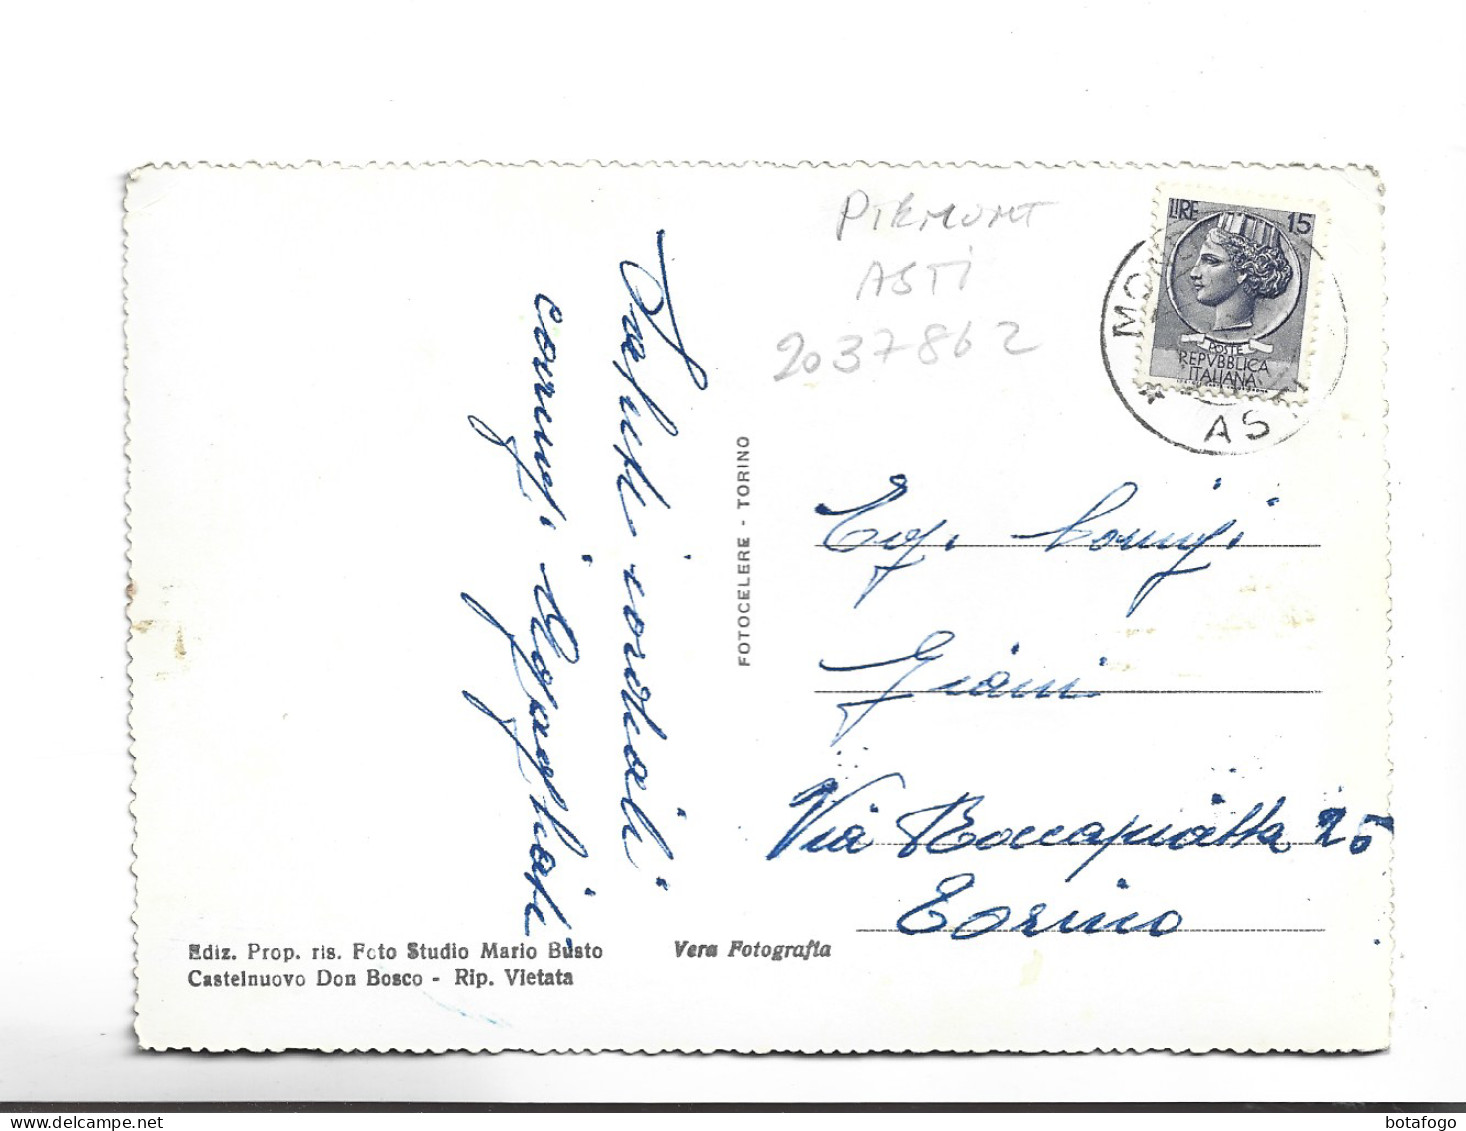 PIEMONT
ASTI
2037862
LIRE 15
POSTE
REPVBBLICA
ITALIANA
MO
AS
Saluti cordiali
coniugi
FOTOCELERE - TORINO
Eg.
Giani
Via Roccapiatta 25
Torino
Ediz. Prop. ris. Foto Studio Mario Busto
Castelnuovo Don Bosco - Rip. Vietata
Vera Fotografia
botafogo